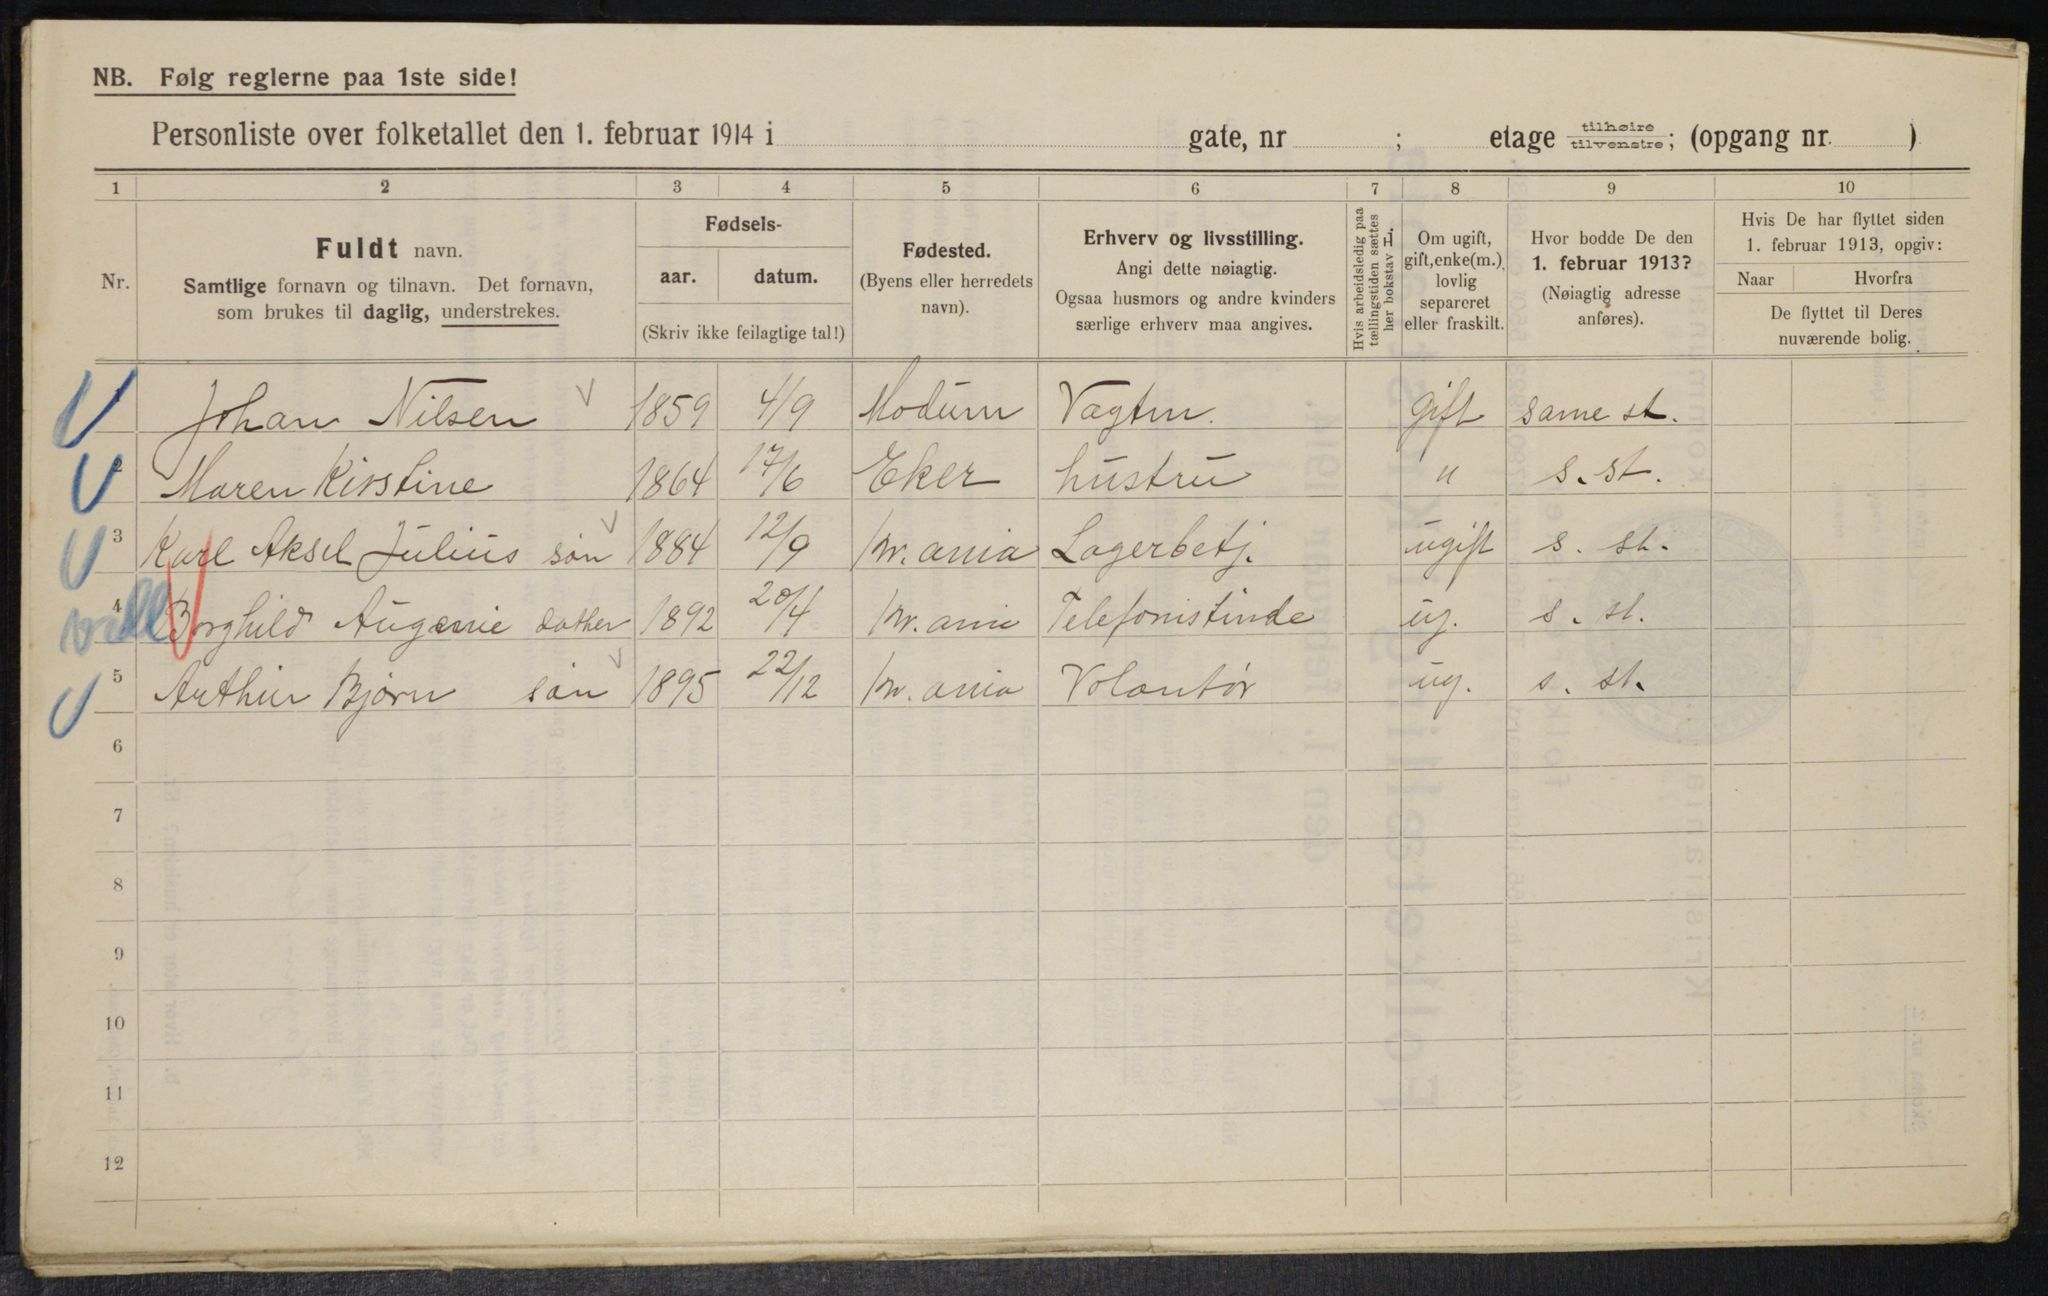 NB. Følg reglerne paa 1ste side!
Personliste over folketallet den 1. februar 1914 i gate, nr ; etage tilhøire tilvenstre; (opgang nr. )
1 2 3 4 5 6 7 8 9 10
Nr.
Fuldt navn.
Samtlige fornavn og tilnavn. Det fornavn,
som brukes til daglig, understrekes.
Fødsels-
aar. datum.
(Skriv ikke feilagtige tal!)
Fødested.
(Byens eller herredets
navn).
Erhverv og livsstilling.
Angi dette nøiagtig.
Ogsaa husmors og andre kvinders
særlige erhverv maa angives.
Hvis arbeidsledig paa
tællingstiden sættes
her bokstav L.
Om ugift,
gift, enke(m.),
lovlig
separeret
eller fraskilt.
Hvor bodde De den
1. februar 1913?
(Nøiagtig adresse
anføres).
Hvis De har flyttet siden
1. februar 1913, opgiv:
Naar Hvorfra
De flyttet til Deres
nuværende bolig.
Johan Nilsen 1859 4/9 Modum Vagtm. gift samme st.
2 Maren Kirstine 1864 17/6 Eker hustru " s. st.
3 Karl Aksel Julius søn 1884 12/9 Kr. ania Lagerbetj. ugift s. st.
4 Borghild Augenie datter 1892 20/4 Kr. ania Telefonistinde ug. s. st.
5 Arthur Bjørn søn 1895 22/12 Kr. ania Volantør ug. s. st.
6
7
8
9
10
11
12